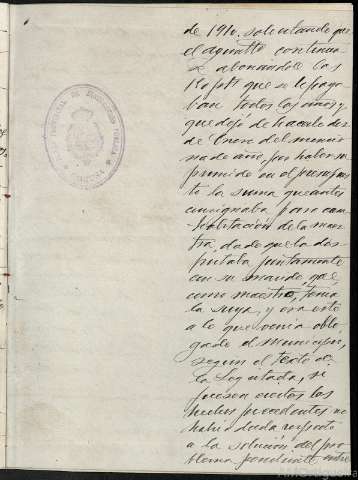 de 1910. solicitando que
el Ayuntto continua
se abonándole las
 ptas que se le paga
ban todos los años y
que dejó de hacerlo des
de Enero del mencio
nado año, por haber su
primido en el presupues
to la suma que antes
consignaba para casa
habitación de la maes
tra, dado que la dis
frutaba juntamente
con su marido, que,
como maestro, tenía
la suya, y era esto
a lo que venía obli
gado el municipio,
según el texto de
la Ley citada, si
fuesen ciertos los
hechos precedentes no
habría duda respecto
a la solución del pro
blema pendiente entre
PROVINCIAL DE INSTRUCCION PUBLICA